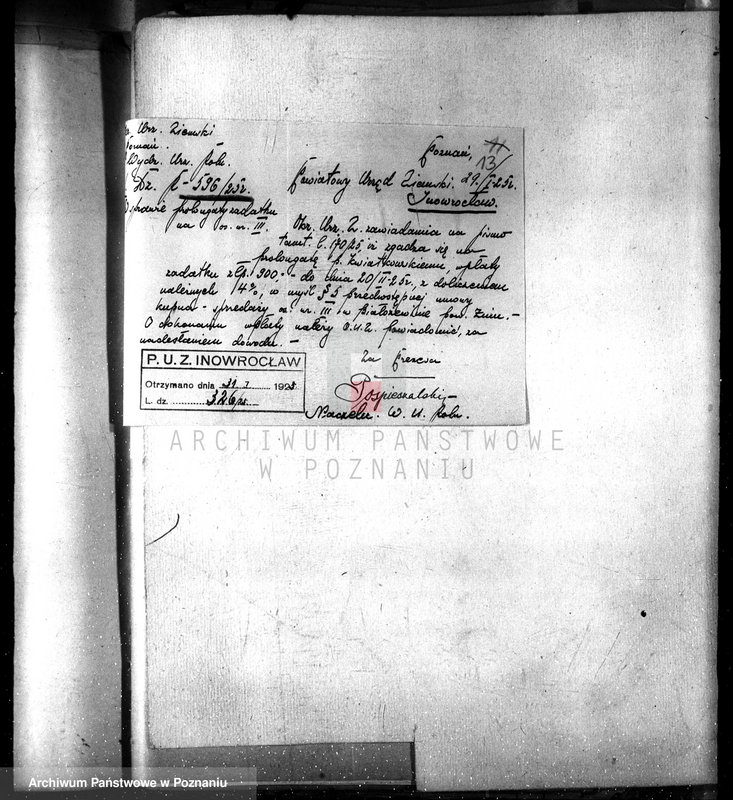 Urz. Ziemski
Poznań.
Wydz. Urz. Rol.
Dz. R - 596/25r.
Sprawie prolongaty zadatku
na os. nr. III.
11
13
Poznań,
29/I-25r.
Powiatowy Urząd Ziemski.
Inowrocław.
Okr. Urz. Z. zawiadamia na pismo
tamt. L. 170/25, iż zgadza się na
prolongatę p. Kwiatkowskiemu, wpłaty
zadatku zł. 900.- do dnia 20/II-25r, z doliczeniem
należnych 14%, w myśl § 5 przedwstępnej umowy
kupna - sprzedaży os. nr. III w Białożewinie pow. Żnin. -
O dokonaniu wpłaty należy O.U.Z. powiadomić, za
nadesłaniem dowodu. -
Za Prezesa
Pospieszalski -
Naczeln. W. U. Roln.
P. U. Z. INOWROCŁAW
Otrzymano dnia 31 I 1925
L. dz. 326/25
ARCHIWUM PAŃSTWOWE
W POZNANIU
Archiwum Państwowe w Poznaniu